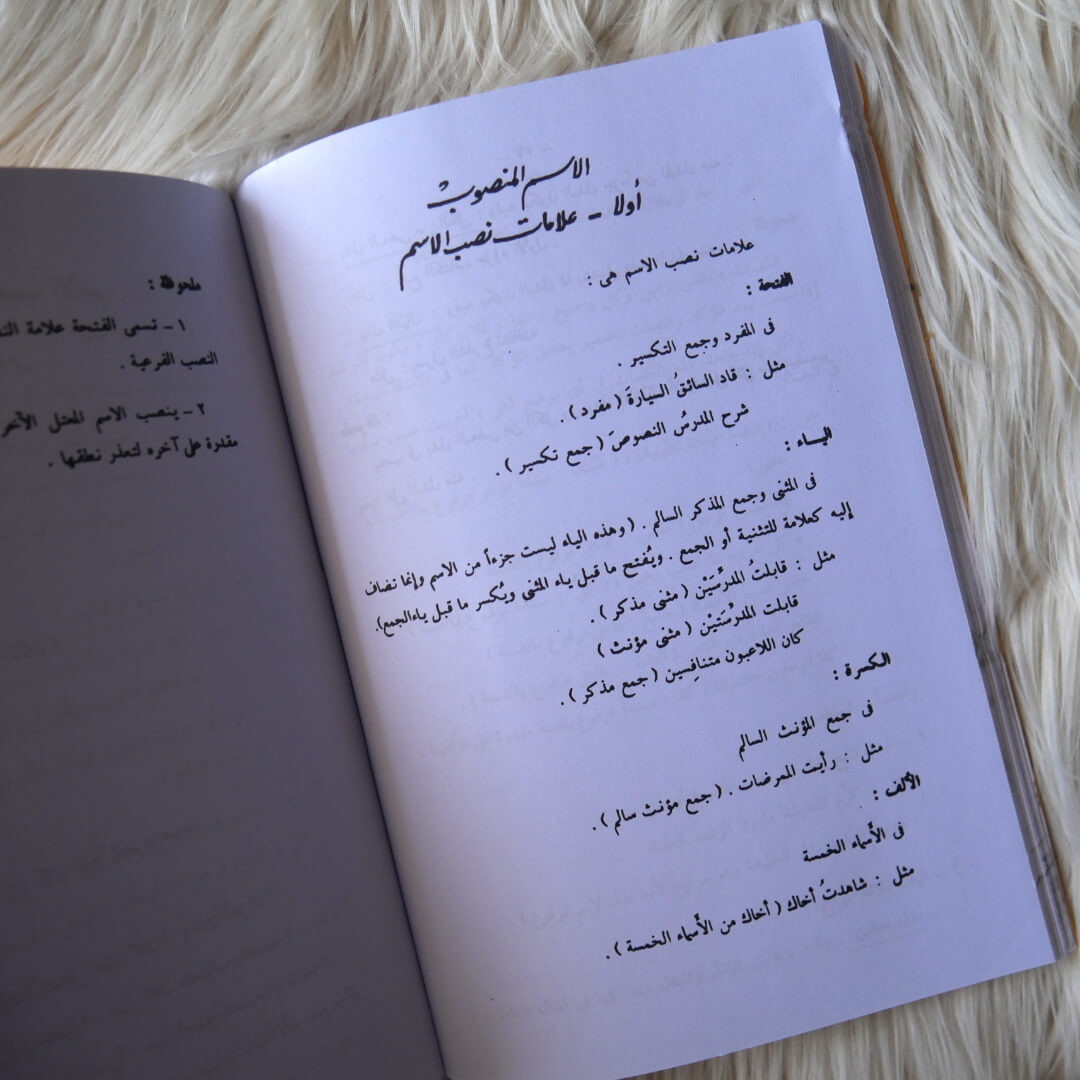 الاسم المنصوب
أولا - علامات نصب الاسم
علامات نصب الاسم هى :
الفتحة :
فى المفرد وجمع التكسير .
مثل : قاد السائقُ السيارةَ ( مفرد ) .
شرح المدرسُ النصوصَ ( جمع تكسير ) .
اليـاء :
فى المثنى وجمع المذكر السالم . ( وهذه الياء ليست جزءاً من الاسم وإنما تضاف
إليه كعلامة للتثنية أو الجمع . ويُفتح ما قبل ياء المثنى ويُكسر ما قبل ياء الجمع).
مثل : قابلتُ المدرِّسَيْن ( مثنى مذكر ) .
قابلت المدرِّسَتَيْن ( مثنى مؤنث )
كان اللاعبون متنافِسين ( جمع مذكر ) .
الكسرة :
فى جمع المؤنث السالم
مثل : رأيت الممرضات . ( جمع مؤنث سالم ) .
الألف :
فى الأسماء الخمسة
مثل : شاهدتُ أخاك ( أخاك من الأسماء الخمسة ) .
ملحوظة :
١ - تسمى الفتحة علامة
النصب الفرعية .
٢ - ينصب الاسم المعتل الآخر
مقدرة على آخره لتعذر نطقها .